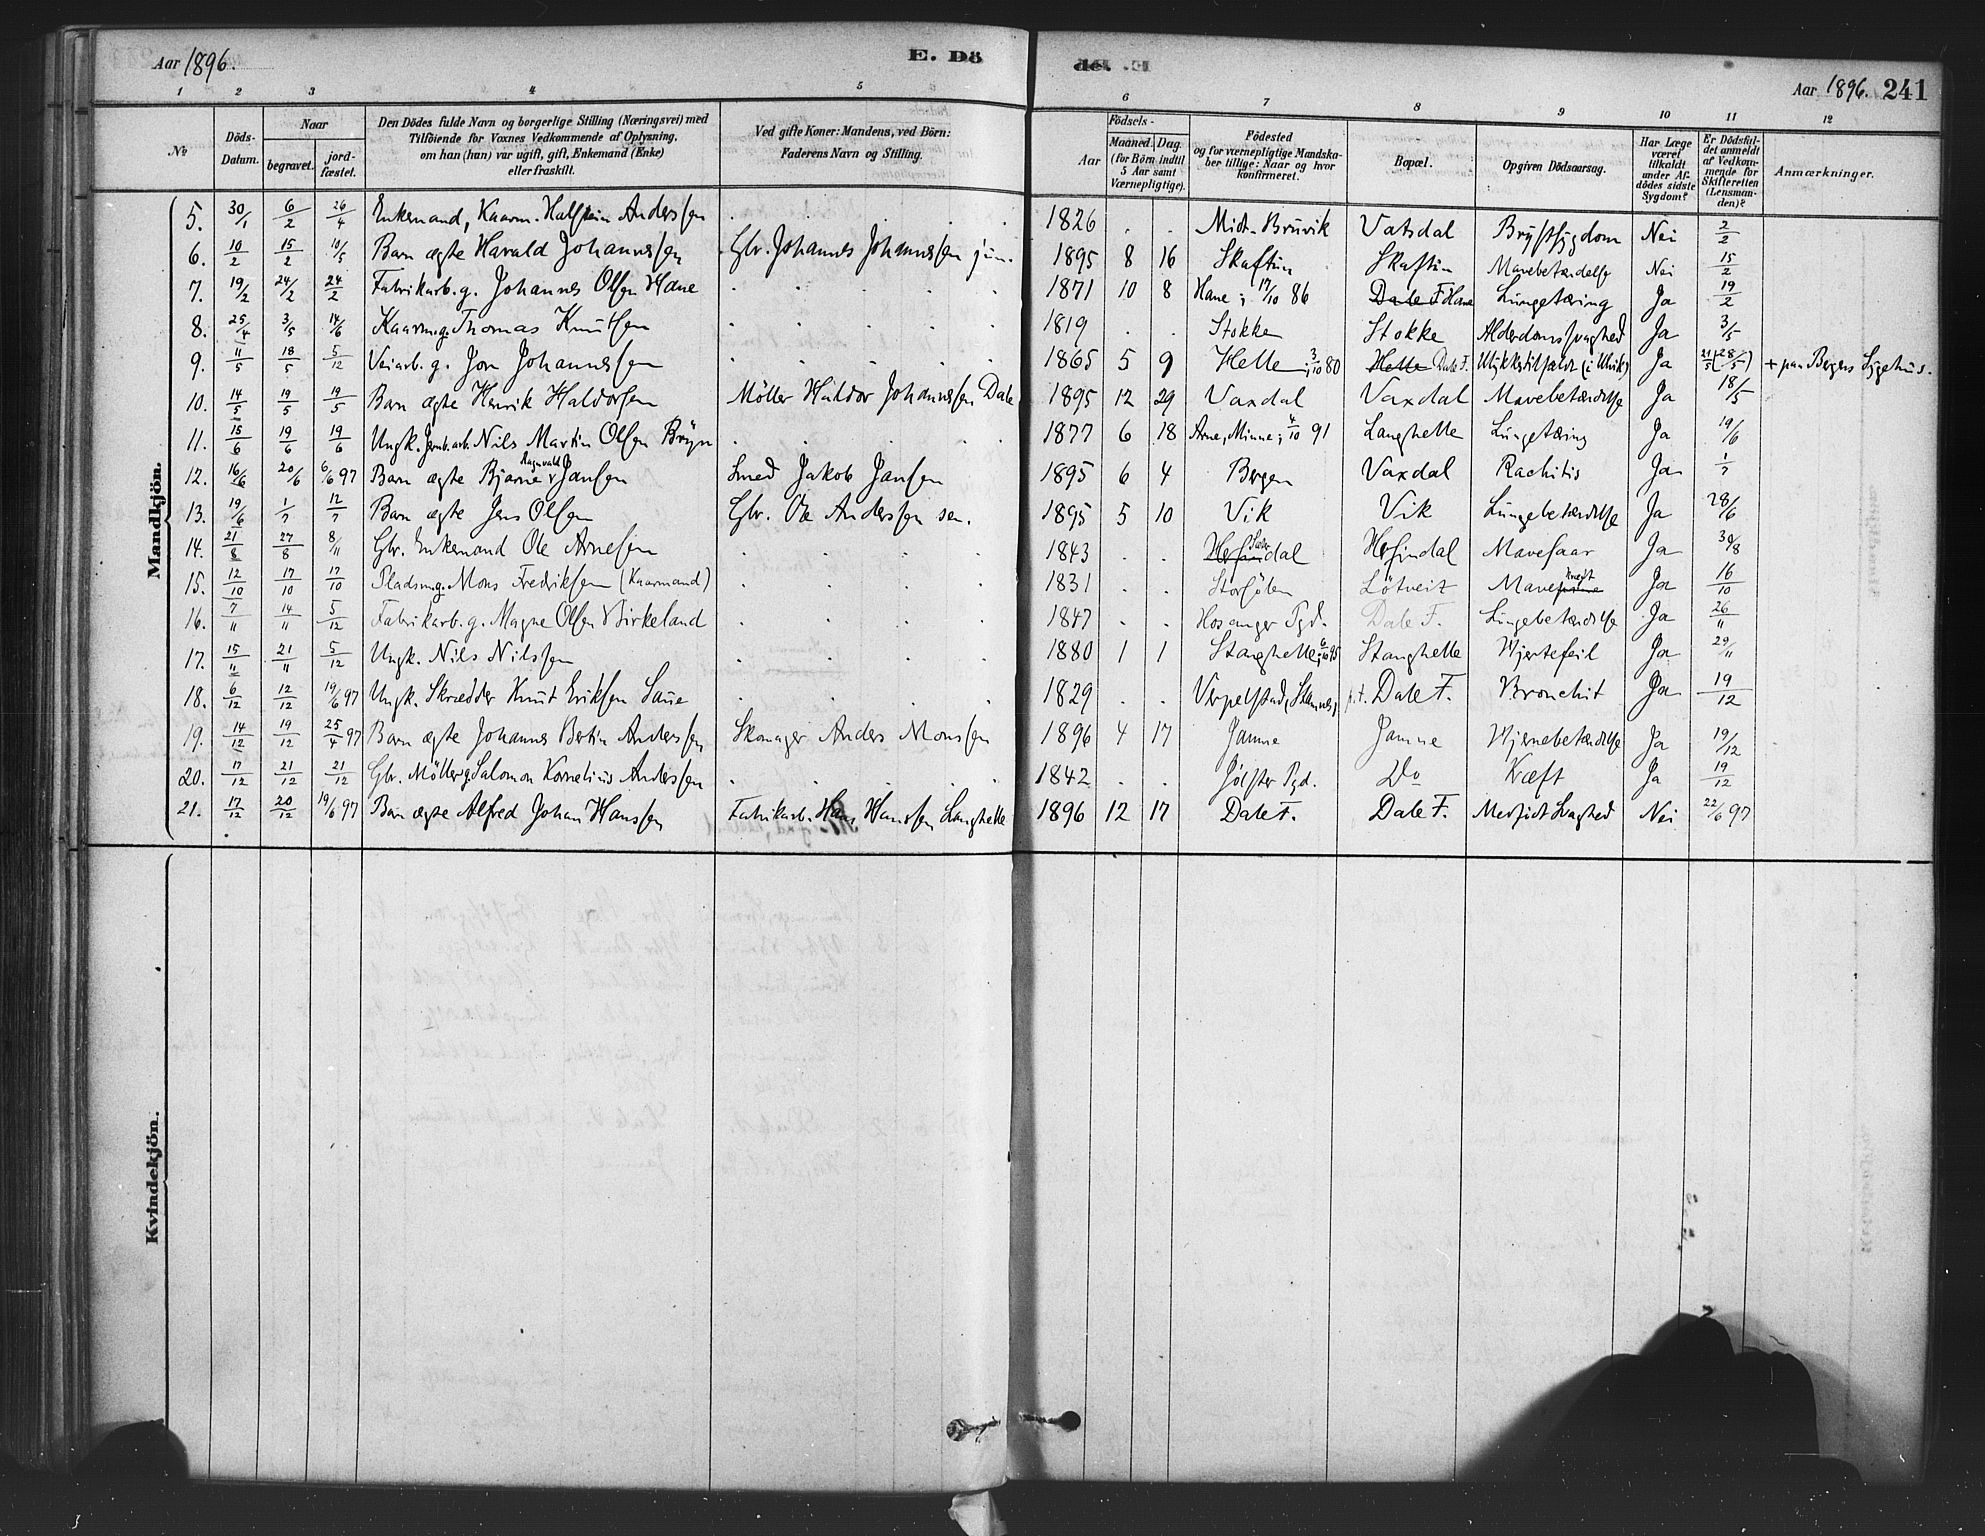 Aar 1896. E. Dö
de. Aar 1896. 241
1 2 3 4 5 6 7 8 9 10 11 12
No
Döds-Datum.
Naar
begravet.
jord-fæstet.
Den Dödes fulde Navn og borgerlige Stilling (Næringsvei) med
Tilföiende for Voxnes Vedkommende af Oplysning,
om han (hun) var ugift, gift, Enkemand (Enke)
eller fraskilt.
Ved gifte Koner: Mandens, ved Börn:
Faderens Navn og Stilling.
Födsels-
Aar
Maaned. Dag.
(for Börn indtil
5 Aar samt
Værnepligtige).
Födested
og for værnepligtige Mandska-
ber tillige: Naar og hvor
konfirmeret.
Bopæl.
Opgiven Dödsaarsag.
Har Læge
været
tilkaldt
under Af-
dödes sidste
Sygdom?
Er Dödsfal-
det anmeldt
af Vedkom-
mende for
Skifteretten
(Lensman-
den)?
Anmærkninger.
Mandkjön.
5. 30/1 6/2 26/4 Enkemand, Kaarm. Halstein Anderssen 1826 Midt-Bruvik Vatsdal Brystsygdom Nei 2/2
6. 10/2 15/2 10/5 Barn ægte Harald Johannessen Gbr. Johannes Johannessen jun. 1895 8 16 Skaftun Skaftun Mavebetændelse Nei 15/2
7. 19/2 24/2 24/2 Fabrikarb. g. Johannes Olsen Hane 1871 10 8 Hane; 17/10 86 Dale F. Hane Lungetæring Ja 19/2
8. 25/4 3/5 14/6 Kaarm. g. Thomas Knutsen 1819 Stokke Stokke Alderdomssvaghed Ja 3/5
9. 11/5 18/5 5/12 Veiarb. g. Jon Johannessen 1865 5 9 Helle; 3/10 80 Helle Dale F. Ulykkestilfælde (i Ulvik) Ja 21/5 (28/5) + paa Bergens Sygehus.
10. 14/5 19/5 19/5 Barn ægte Henrik Haldorsen Möller Haldor Johannessen Dale 1895 12 29 Vaxdal Vaxdal Mavebetændelse Ja 18/5
11. 15/6 19/6 19/6 Ungk. Jernb.arb. Nils Martin Olsen Bryn 1877 6 18 Arne, Minne; 4/10 91 Langhelle Lungetæring Ja 19/6
12. 16/6 20/6 6/6 97 Barn ægte Bjarne Ragnvald Jansen Smed Jakob Jansen 1895 6 4 Bergen Vaxdal Rachitis Ja 1/7
13. 19/6 1/7 12/7 Barn ægte Jens Olsen Gbr. Ole Anderssen sen. 1895 5 10 Vik Vik Lungebetændelse Ja 28/6
14. 21/8 27/8 8/11 Gbr. Enkemand Ole Arnesen 1843 Hesjedal Herfindal Mavesaar Ja 30/8
15. 12/10 17/10 17/10 Pladsm. g. Mons Fredriksen (Kaarmand) 1831 Storsölen Lötveit Mavekræft Ja 16/10
16. 7/11 14/11 5/12 Fabrikarb. g. Magne Olsen Birkeland 1847 Hosanger Pgd. Dale F. Lungebetændelse Ja 26/11
17. 15/11 21/11 5/12 Ungk. Nils Nilssen 1880 1 1 Stanghelle; 6/10 95 Stanghelle Hjertefeil Ja 29/11
18. 6/12 12/12 19/6 97 Ungk. Skrædder Knut Eriksen Saue 1829 Stamnes, p.t. Dale F. Bronchit Ja 19/12
19. 14/12 19/12 25/4 97 Barn ægte Johannes Bertin Anderssen Skomager Anders Monssen 1896 4 17 Jamne Jamne Hjernebetændelse Ja 19/12
20. 17/12 21/12 21/12 Gbr. Möller g. Salomon Kornelius Anderssen 1842 Jölster Pgd. Do Kræft Ja 19/12
21. 17/12 20/12 19/6 97 Barn ægte Alfred Johan Hanssen Fabrikarb. Hans Hanssen Langhelle 1896 12 17 Dale F. Dale F. Medfödt Svaghed Nei 22/6 97
Kvindekjön.